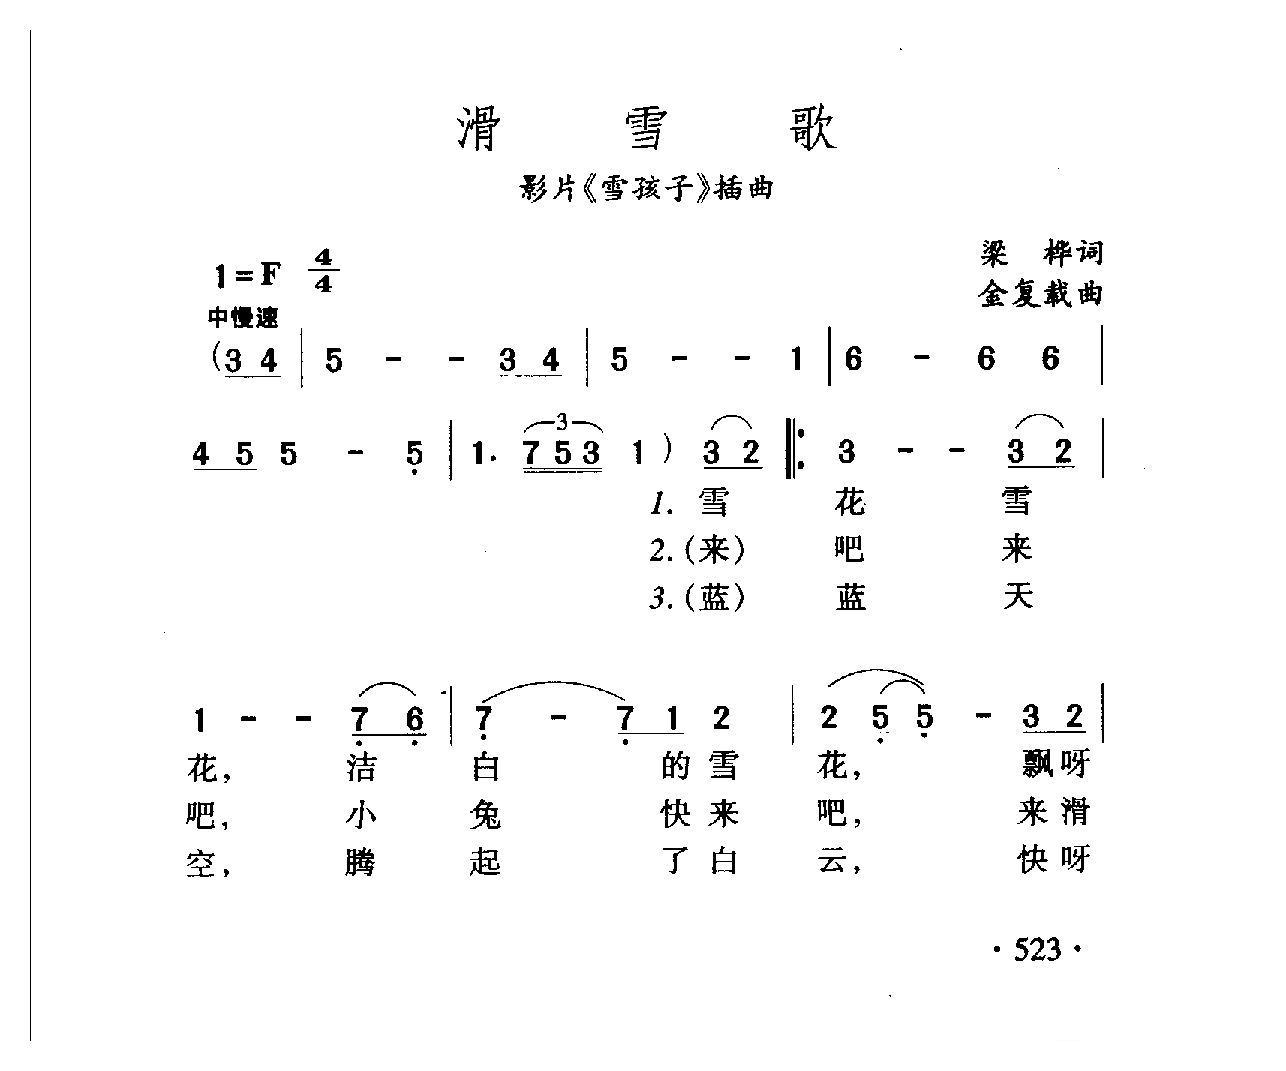 滑雪歌
影片《雪孩子》插曲
梁桦词
1=F 4/4
金复载曲
中慢速
(3 4 | 5 - - 3 4 | 5 - - 1 | 6 - 6 6 |
4 5 5 - 5 | 1. 3 7 5 3 1 ) 3 2 |: 3 - - 3 2 |
1. 雪 花 雪
2. (来) 吧 来
3. (蓝) 蓝 天
1 - - 7 6 | 7 - 7 1 2 | 2 5 5 - 3 2 |
花, 洁 白 的 雪 花, 飘 呀
吧, 小 兔 快 来 吧, 来 滑
空, 腾 起 了 白 云, 快 呀
· 523 ·